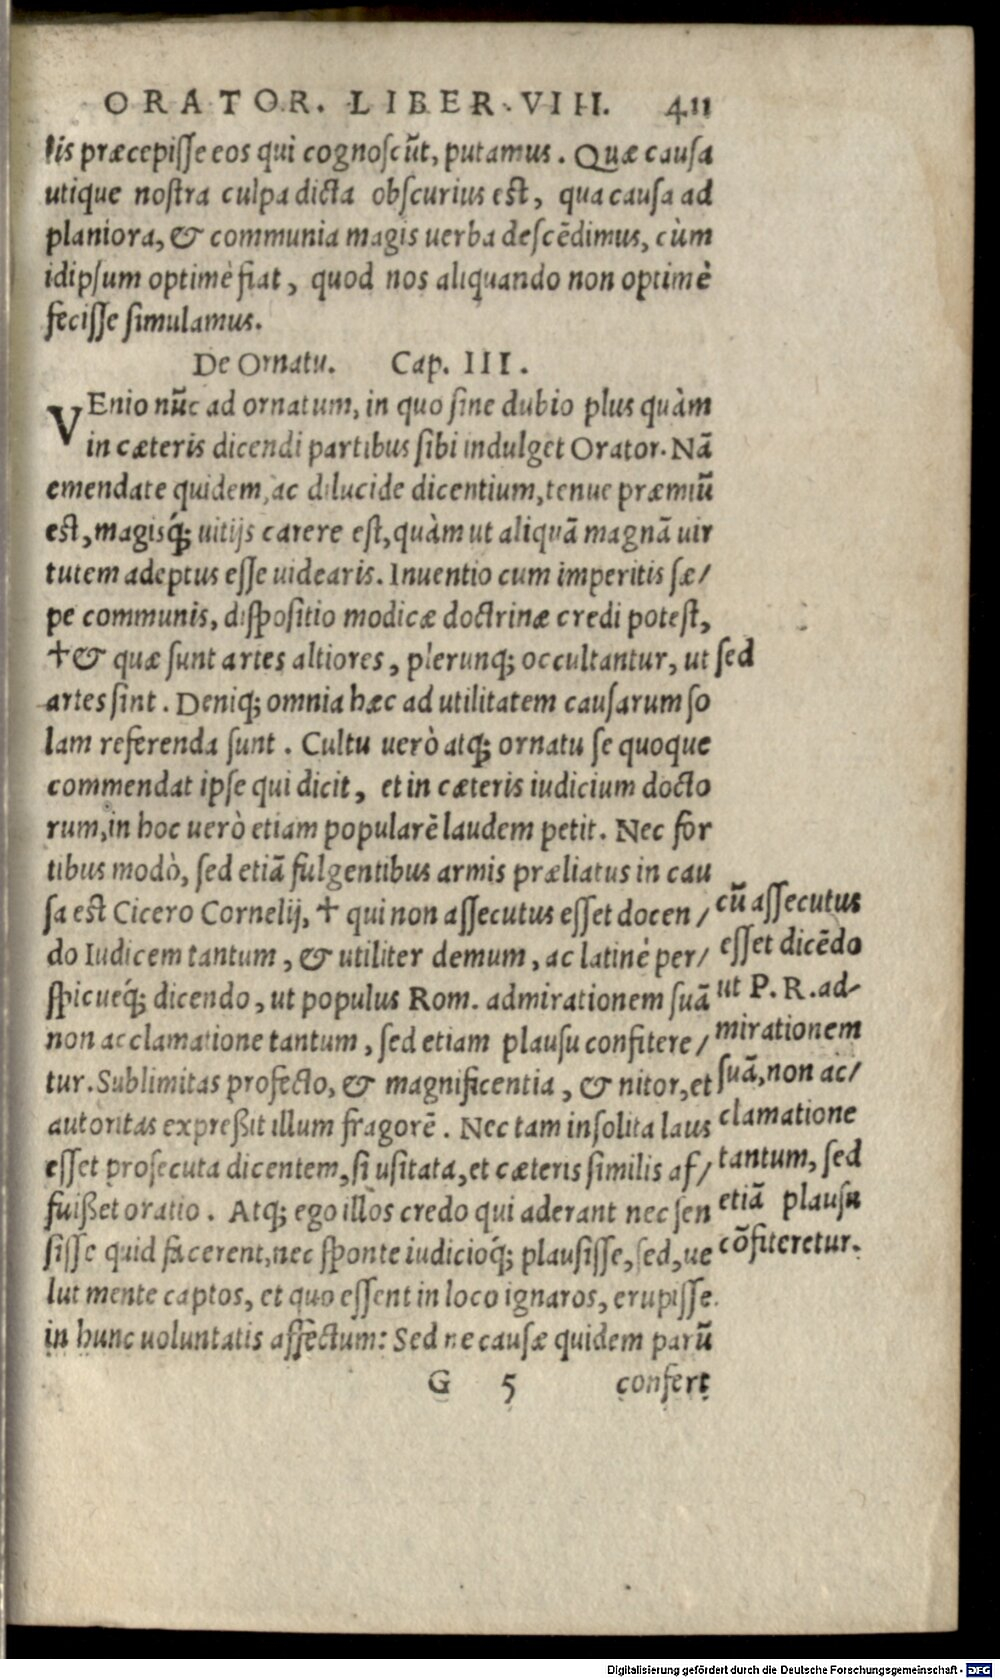 ORATOR. LIBER. VIII. 411
lis præcepisse eos qui cognoscũt, putamus. Quæ causa
utique nostra culpa dicta obscurius est, qua causa ad
planiora, & communia magis uerba descẽdimus, cùm
idipsum optimè fiat, quod nos aliquando non optimè
fecisse simulamus.
De Ornatu. Cap. III.
VEnio nũc ad ornatum, in quo sine dubio plus quàm
in cæteris dicendi partibus sibi indulget Orator. Nã
emendate quidem, ac dilucide dicentium, tenue præmiũ
est, magisq́; uitijs carere est, quàm ut aliquã magnã uir
tutem adeptus esse uidearis. Inuentio cum imperitis sæ/
pe communis, dispositio modicæ doctrinæ credi potest,
✝& quæ sunt artes altiores, plerunq; occultantur, ut
artes sint. Deniq; omnia hæc ad utilitatem causarum so
lam referenda sunt. Cultu uerò atq; ornatu se quoque
commendat ipse qui dicit, et in cæteris iudicium docto
rum, in hoc uerò etiam popularẽ laudem petit. Nec for
tibus modò, sed etiã fulgentibus armis præliatus in cau
sa est Cicero Cornelij, ✝ qui non assecutus esset docen/
do Iudicem tantum, & utiliter demum, ac latinè per/
spicueq́; dicendo, ut populus Rom. admirationem suã
non acclamatione tantum, sed etiam plausu confitere/
tur. Sublimitas profecto, & magnificentia, & nitor, et
autoritas expreßit illum fragorẽ. Nec tam insolita laus
esset prosecuta dicentem, si usitata, et cæteris similis af/
fuißet oratio. Atq; ego illos credo qui aderant nec sen
sisse quid facerent, nec sponte iudicioq́; plausisse, sed, ue
lut mente captos, et quo essent in loco ignaros, erupisse
in hunc uoluntatis affectum: Sed ne causæ quidem parũ
G 5 confert
sed
cũ assecutus
esset dicẽdo
ut P. R. ad-
mirationem
suã, non ac/
clamatione
tantum, sed
etiã plausu
cõfiteretur.
Digitalisierung gefördert durch die Deutsche Forschungsgemeinschaft - DFG